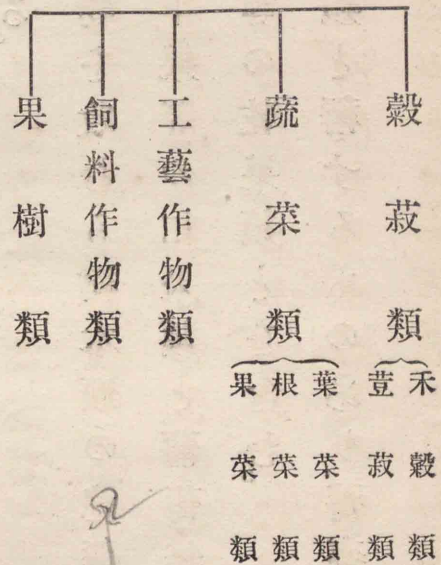 穀菽類
禾穀類
荳菽類
蔬菜類
葉菜類
根菜類
果菜類
工藝作物類
飼料作物類
果樹類